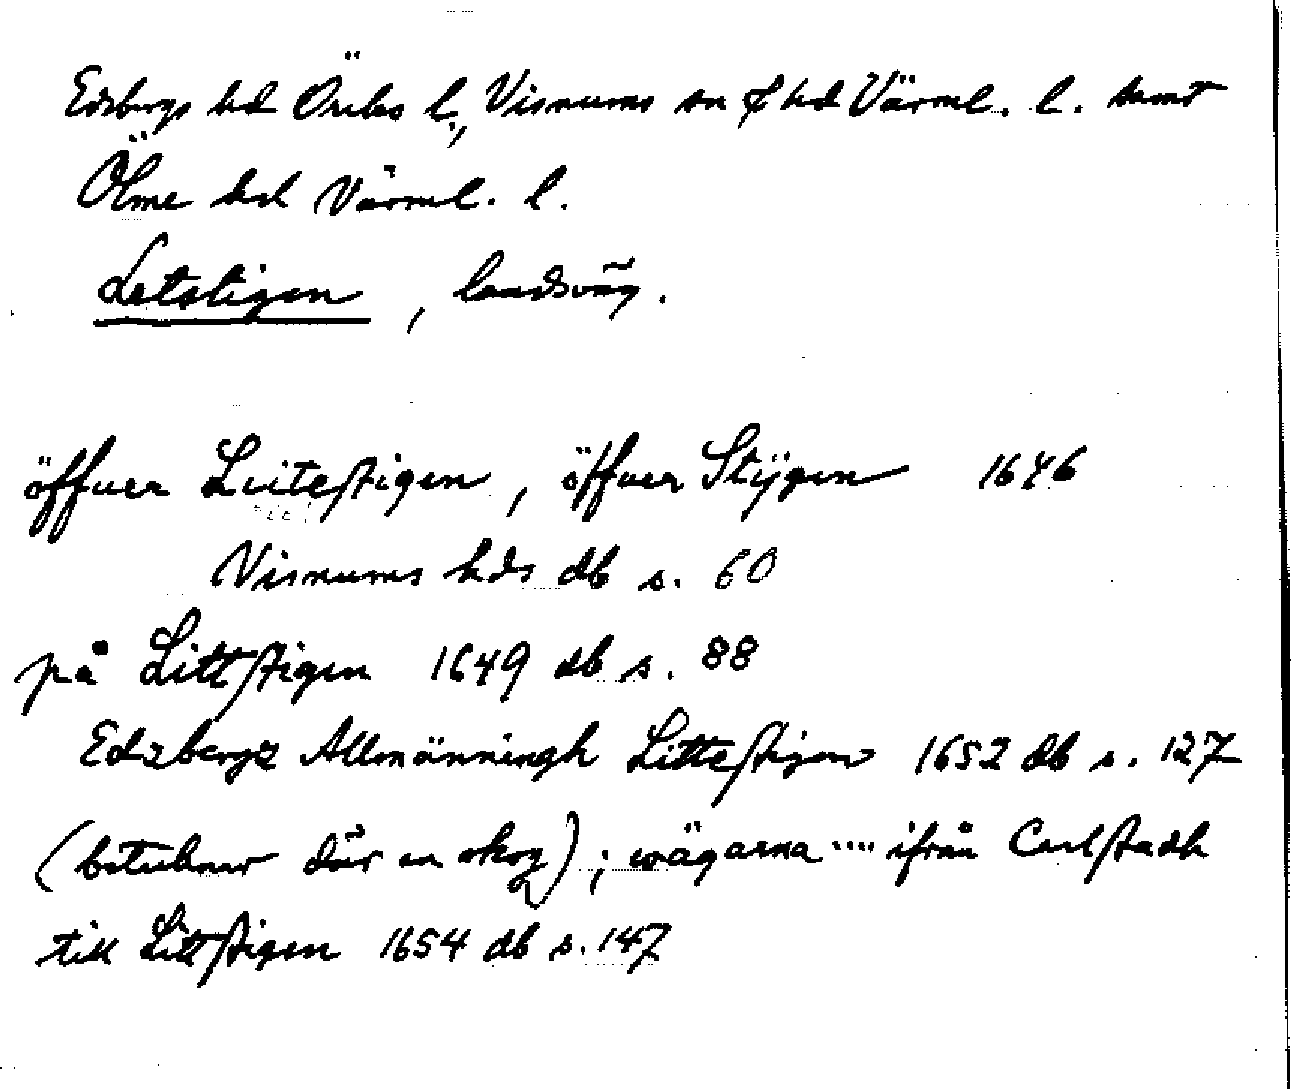 Edsbergs hd Örebro l., Visnums sn & hd Värml. l. samt
Ölme hd Värml. l.
Letstigen, landsväg.
öffuer Leitestigen, öffuer Stÿgen 1646
Visnums hds db s. 60
på Littstigen 1649 db s. 88
Edzbergz Allmänningh Littestigen 1652 db s. 127
(betecknar där en skog); wägarna .... ifrån Carlstadh
till Littstigen 1654 db s. 147